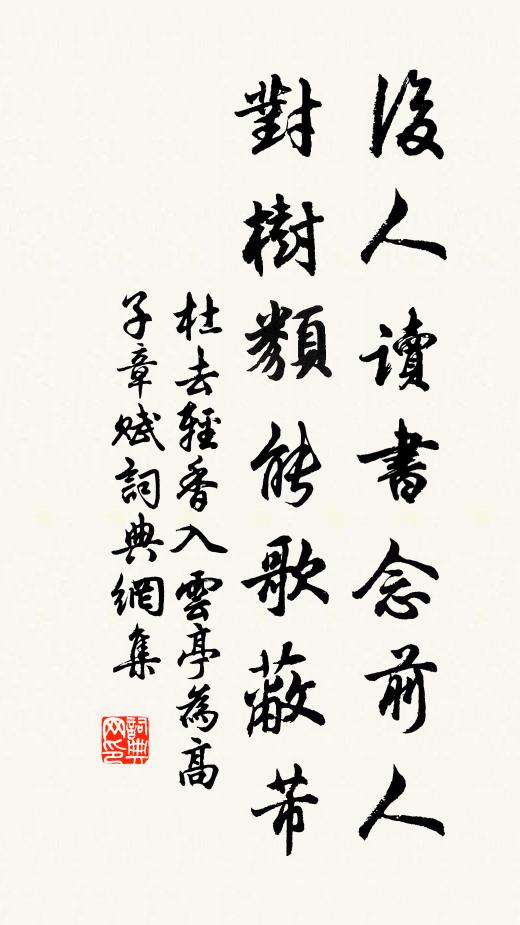 後人讀書念前人
對樹類能歌蔽芾
杜去輕香入雲亭為高
子章賦詞典網集
詞典网印